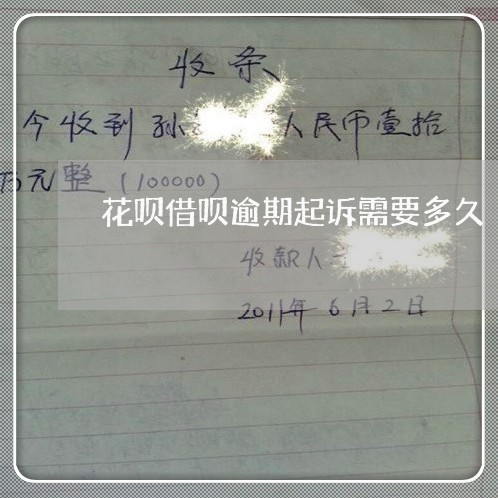 收条
今收到孙 人民币壹拾
万元整(100000)
花呗借呗逾期起诉需要多久
收款人
2011年6月2日